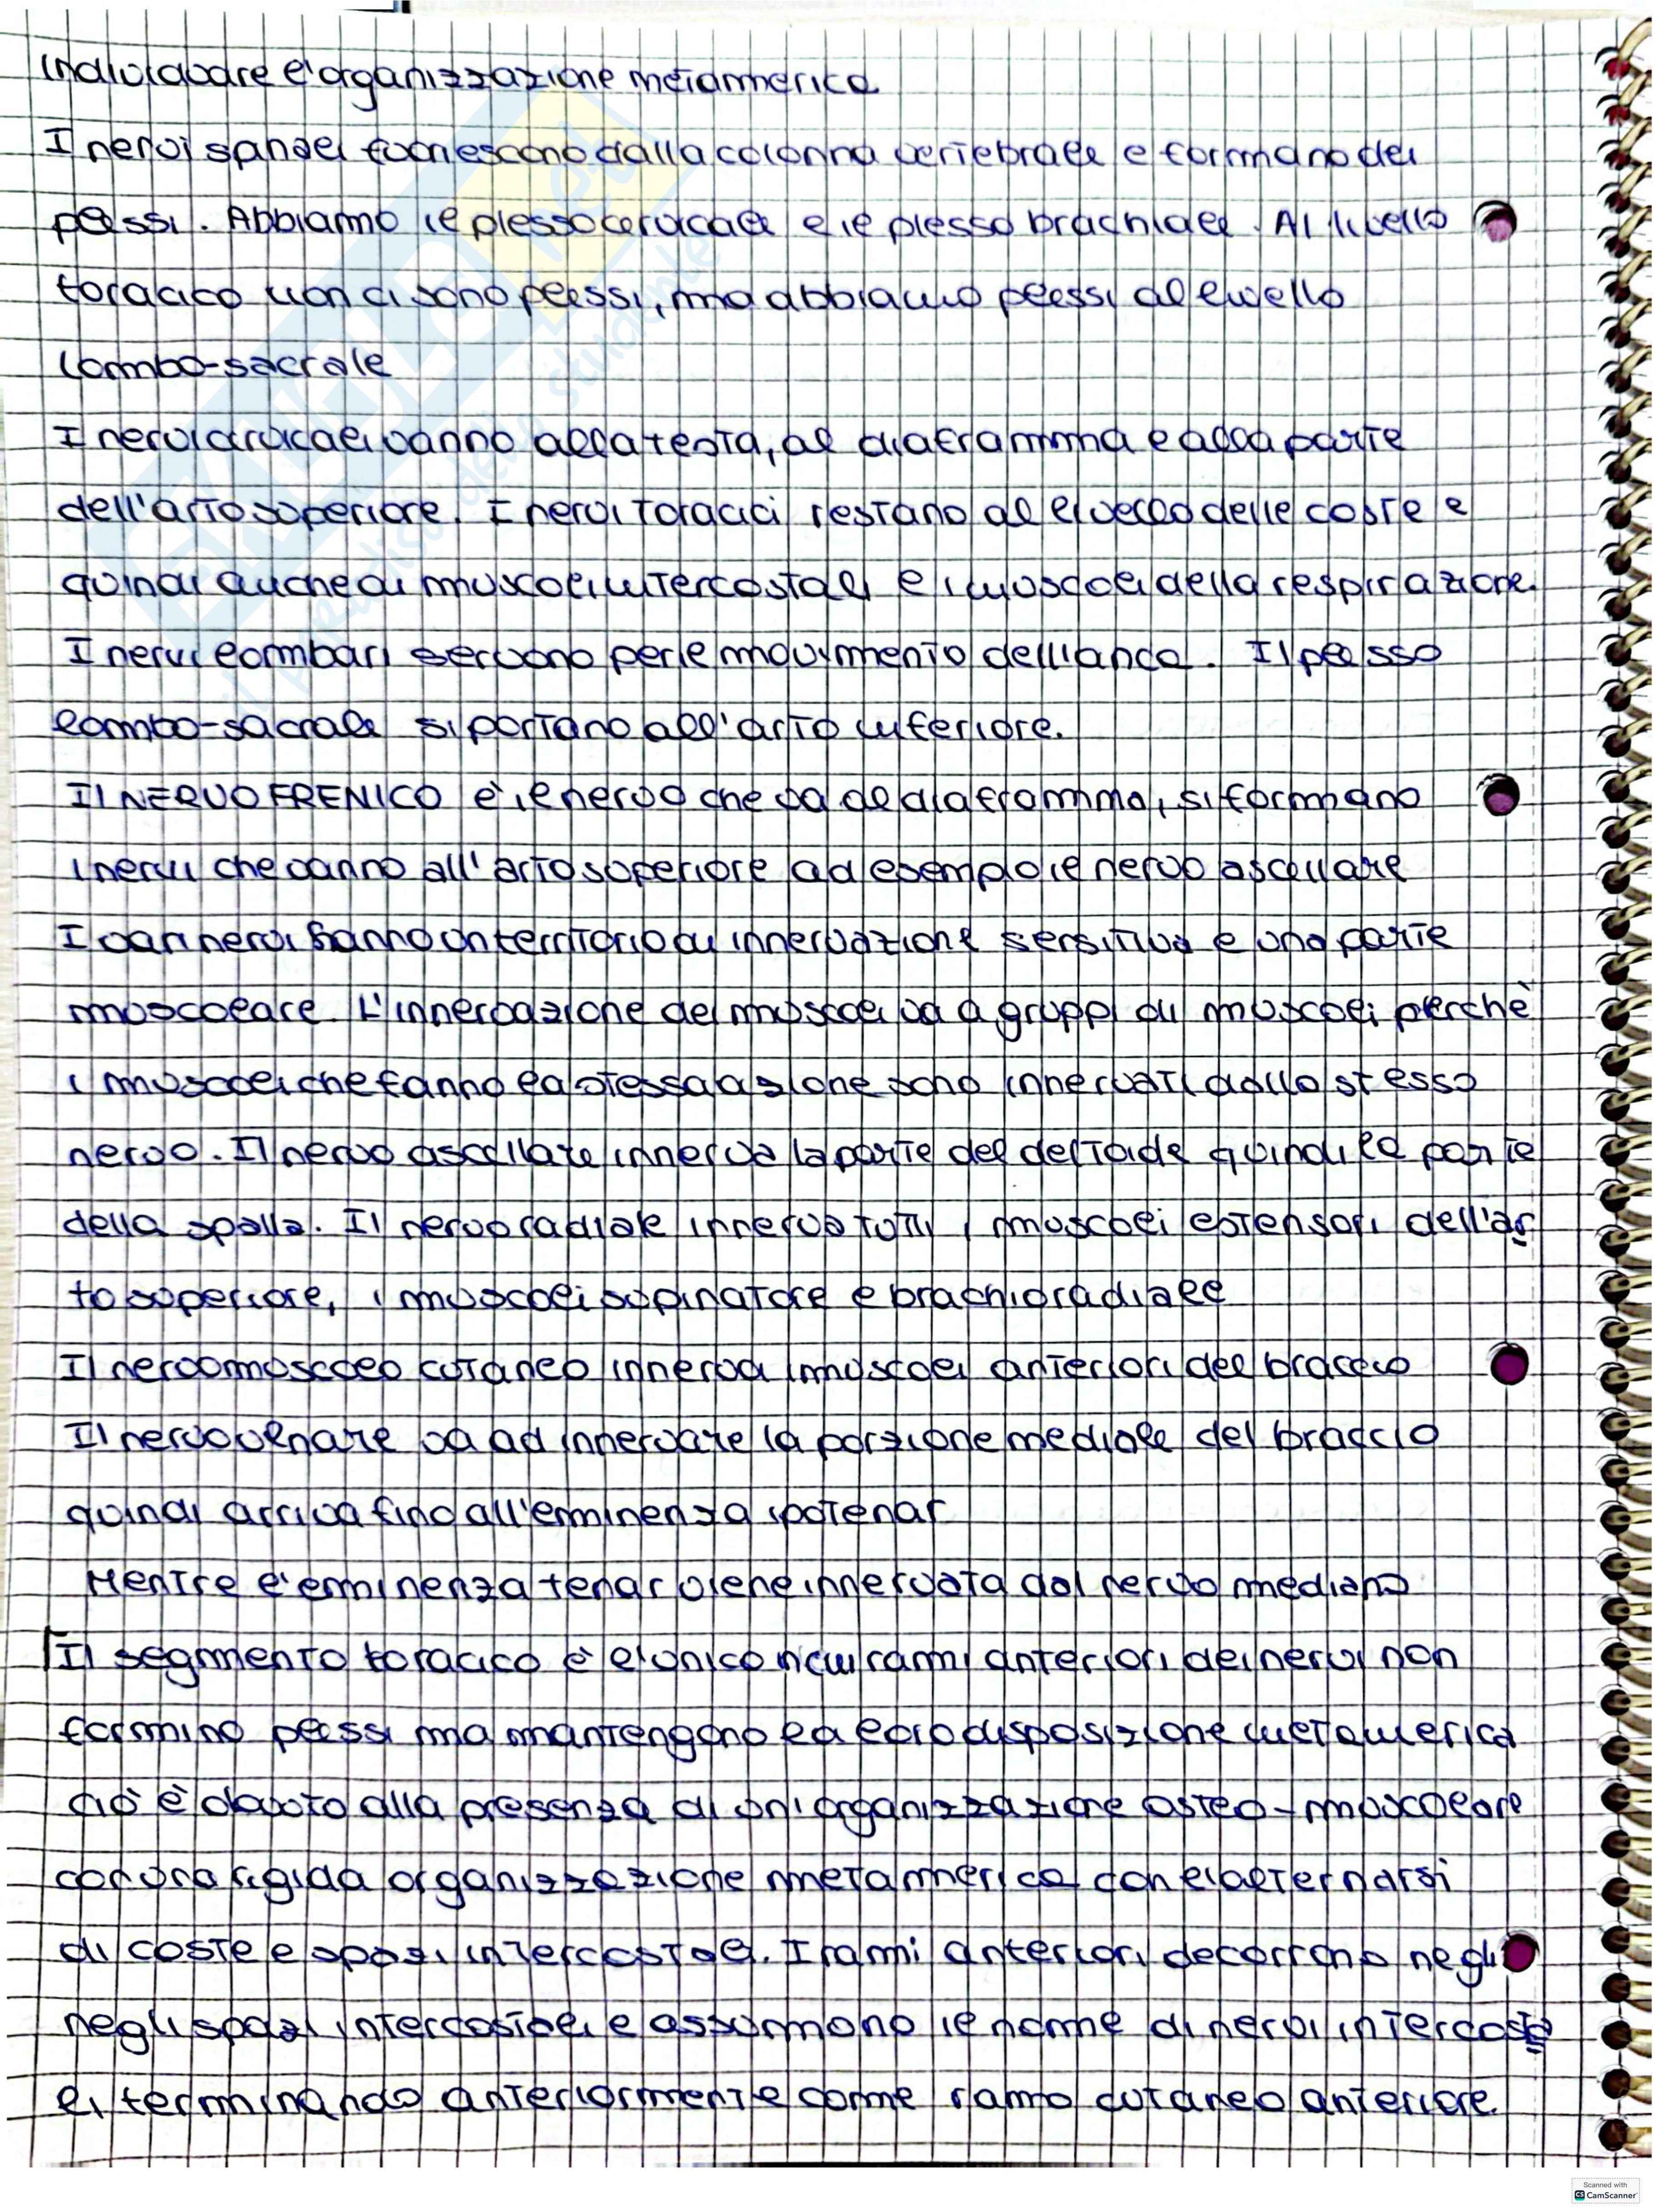 individuare l'organizzazione metamerica
I nervi spinali fuoriescono dalla colonna vertebrale e formano dei
plessi. Abbiamo il plesso cervicale e il plesso brachiale. Al livello
toracico non ci sono plessi, ma abbiamo plessi al livello
lombo-sacrale
I nervi cervicali vanno alla testa, al diaframma e alla parte
dell'arto superiore. I nervi toracici restano al livello delle coste e
quindi anche ai muscoli intercostali e i muscoli della respirazione.
I nervi lombari servono per il movimento dell'anca. Il plesso
lombo-sacrale si portano all'arto inferiore.
Il NERVO FRENICO è il nervo che va al diaframma, si formano
i nervi che vanno all'arto superiore ad esempio il nervo ascellare
I vari nervi hanno un territorio di innervazione sensitiva e una parte
muscolare. L'innervazione dei muscoli va a gruppi di muscoli perchè
i muscoli che fanno la stessa azione sono innervati dallo stesso
nervo. Il nervo ascellare innerva la parte del deltoide quindi la parte
della spalla. Il nervo radiale innerva tutti i muscoli estensori dell'ar
to superiore, i muscoli supinatore e brachioradiale
Il nervo muscolo cutaneo innerva i muscoli anteriori del braccio
Il nervo ulnare va ad innervare la porzione mediale del braccio
quindi arriva fino all'eminenza ipotenar
Mentre l'eminenza tenar viene innervata dal nervo mediano
Il segmento toracico è l'unico in cui i rami anteriori dei nervi non
formino plessi ma mantengono la loro disposizione metamerica
ciò è dovuto alla presenza di un'organizzazione osteo-muscolare
con una rigida organizzazione metamerica con l'alternarsi
di coste e spazi intercostali. I rami anteriori decorrono negli
negli spazi intercostali e assumono il nome di nervi intercosta
li terminando anteriormente come ramo cutaneo anteriore.
SKUOLA.net
il paradiso dello studente
Scanned with
CS CamScanner